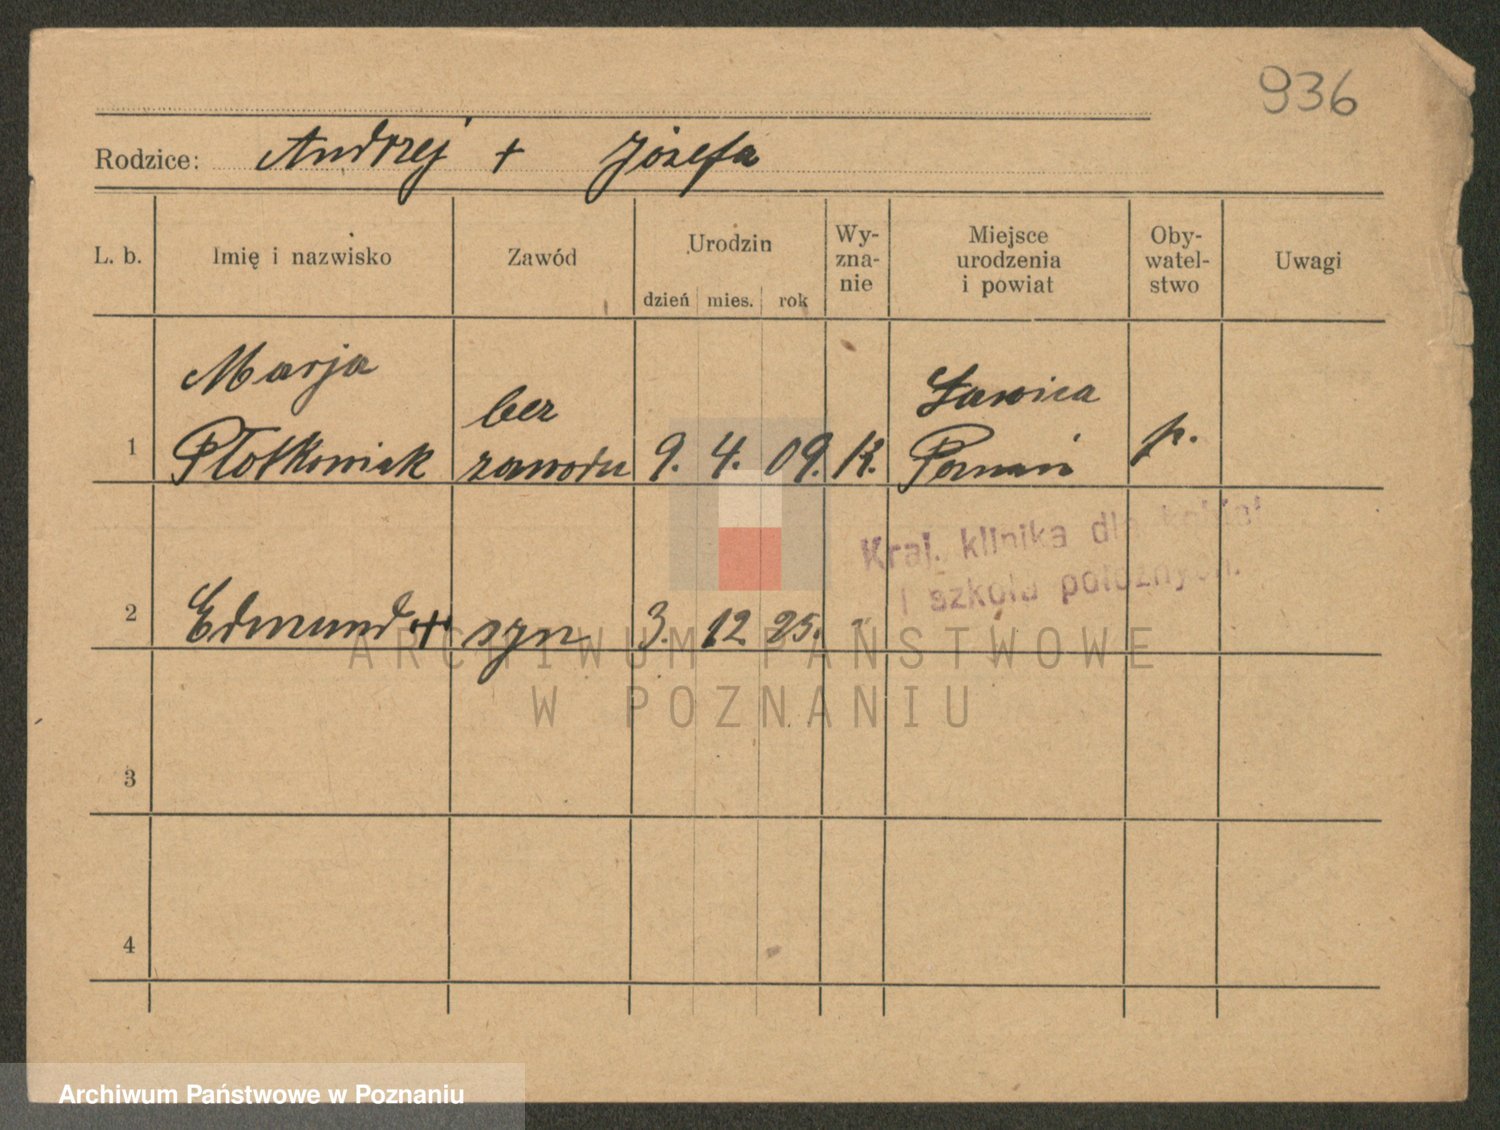 936
Rodzice: Andrzej + Józefa
L. b. Imię i nazwisko Zawód Urodzin dzień mies. rok Wy-zna-nie Miejsce urodzenia i powiat Oby-watel-stwo Uwagi
Marja bez Ławica
1 Płotkowiak zawodu 9. 4. 09. K. Poznań p.
Kraj. klinika dla kobiet
i szkoła położnych.
2 Edmund + syn 3. 12. 25.
ARCHIWUM PAŃSTWOWE
W POZNANIU
3
4
Archiwum Państwowe w Poznaniu